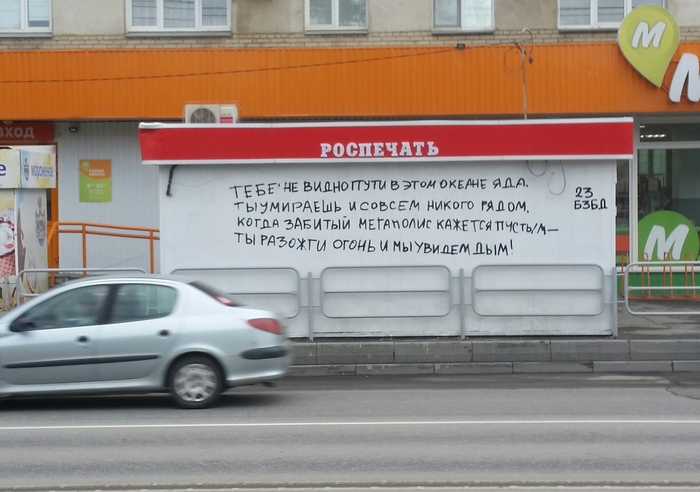 РОСПЕЧАТЬ
ТЕБЕ НЕ ВИДНО ПУТИ В ЭТОМ ОКЕАНЕ ЯДА.
ТЫ УМИРАЕШЬ И СОВСЕМ НИКОГО РЯДОМ,
КОГДА ЗАБИТЫЙ МЕГАПОЛИС КАЖЕТСЯ ПУСТЫМ—
ТЫ РАЗОЖГИ ОГОНЬ И МЫ УВИДЕМ ДЫМ!
23
БЗБД
ВХОД
МОРОЖЕНОЕ
М
М
М